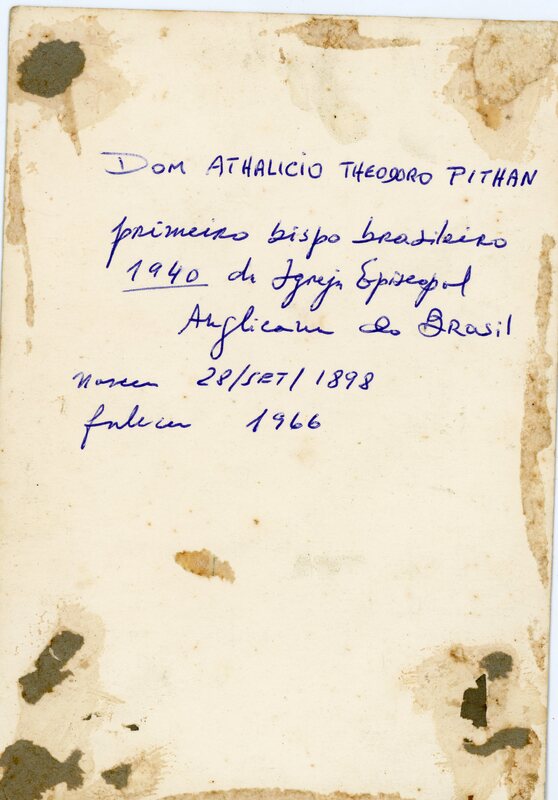 DOM ATHALICIO THEODORO PITHAN
primeiro bispo brasileiro
1940 da Igreja Episcopal
Anglicana do Brasil
nasceu 28/SET/1898
faleceu 1966